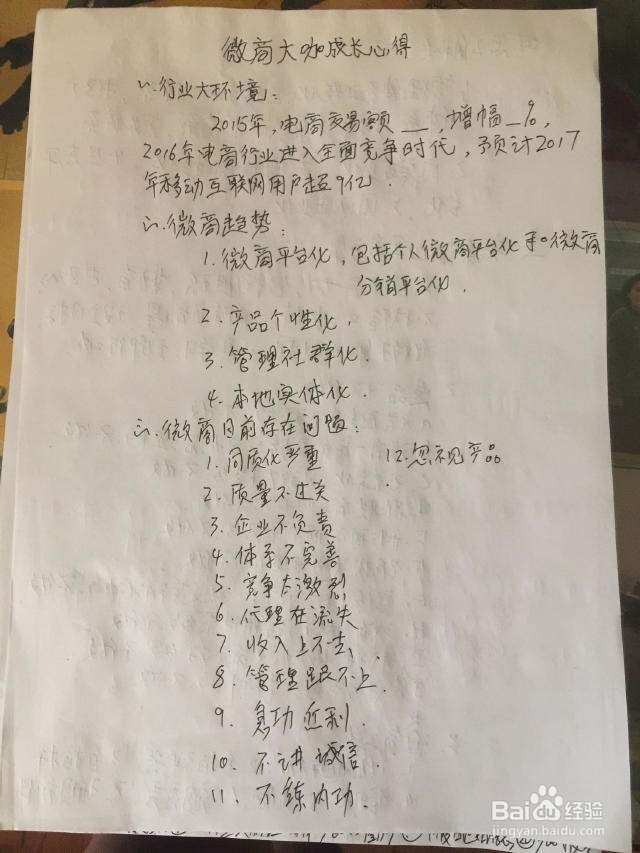 微商大咖成长心得
一、行业大环境：
2015年，电商交易额__，增幅__%，
2016年电商行业进入全面竞争时代，预计2017
年移动互联网用户超9亿.
二、微商趋势：
1.微商平台化，包括个人微商平台化和微商
分销平台化.
2.产品个性化.
3.管理社群化.
4.本地实体化.
三、微商目前存在问题：
1.同质化严重
12.忽视产品
2.质量不过关
3.企业不负责
4.体系不完善
5.竞争太激烈
6.代理在流失
7.收入上不去、
8.管理跟不上.
9.急功近利.
10.不讲诚信.
11.不练内功.
Baidu经验
jingyan.baidu.com